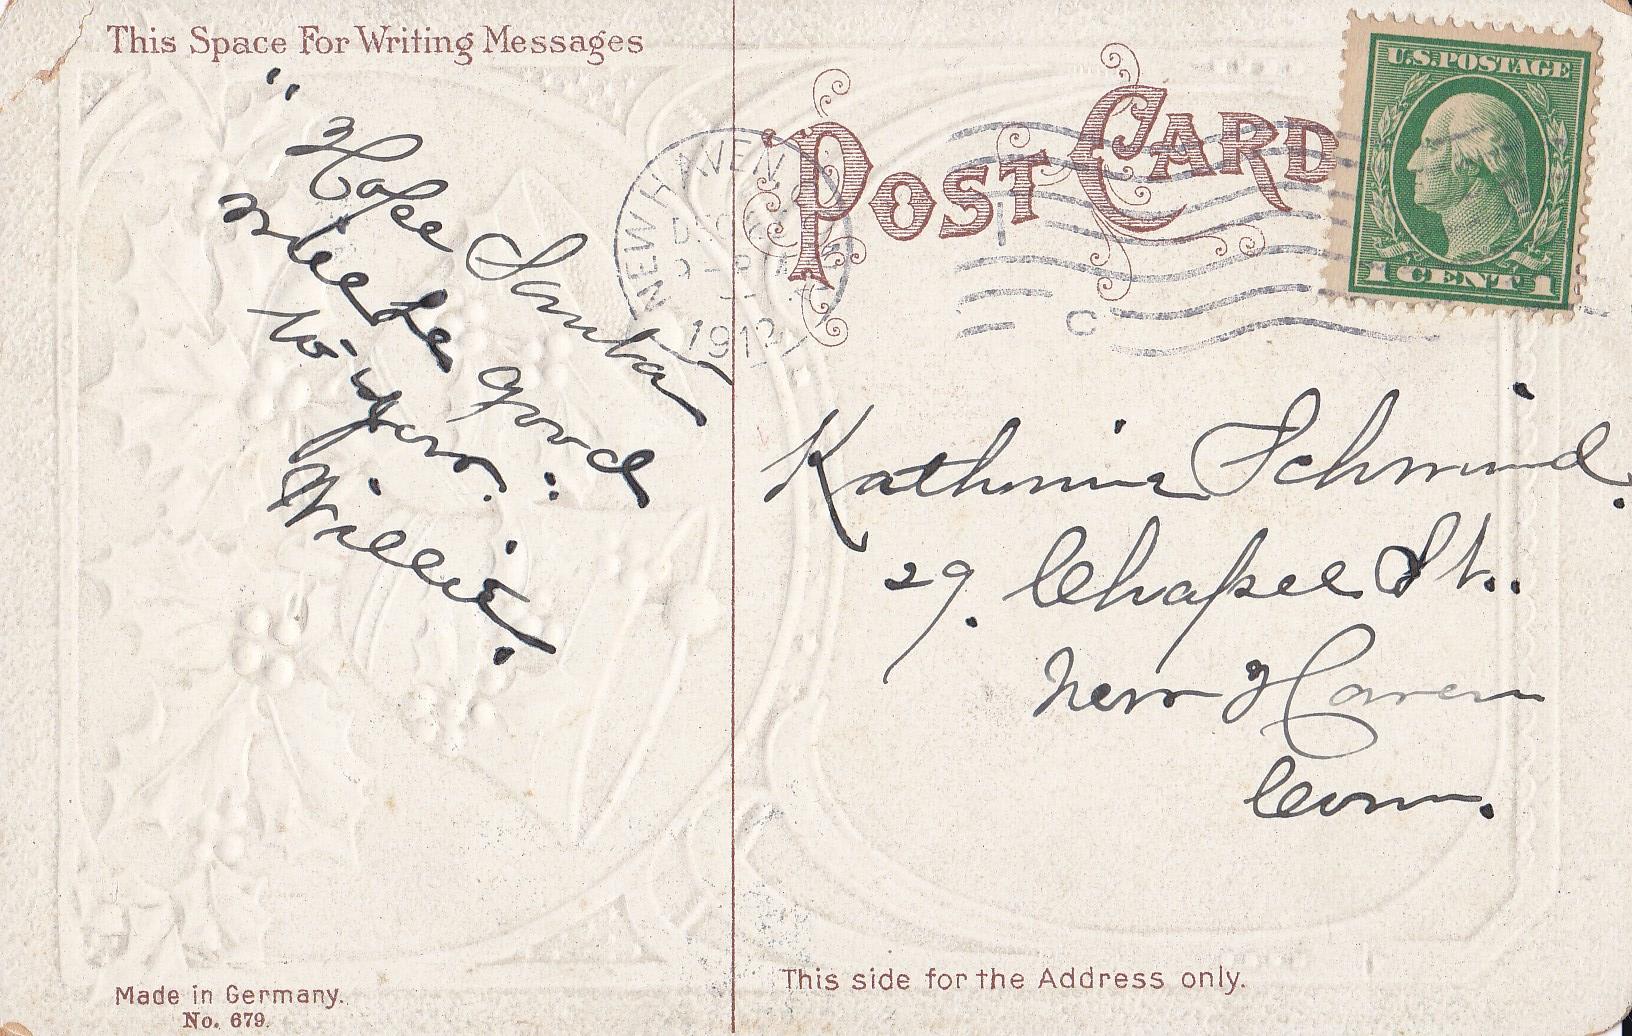 This Space For Writing Messages
"Hope Santa
will be good
to you."
Willie.
Made in Germany.
No. 679.
POST CARD
NEW HAVEN
1912
U.S. POSTAGE
1 CENT 1
Katherine Schwind.
29. Chapel St..
New Haven
Conn.
This side for the Address only.